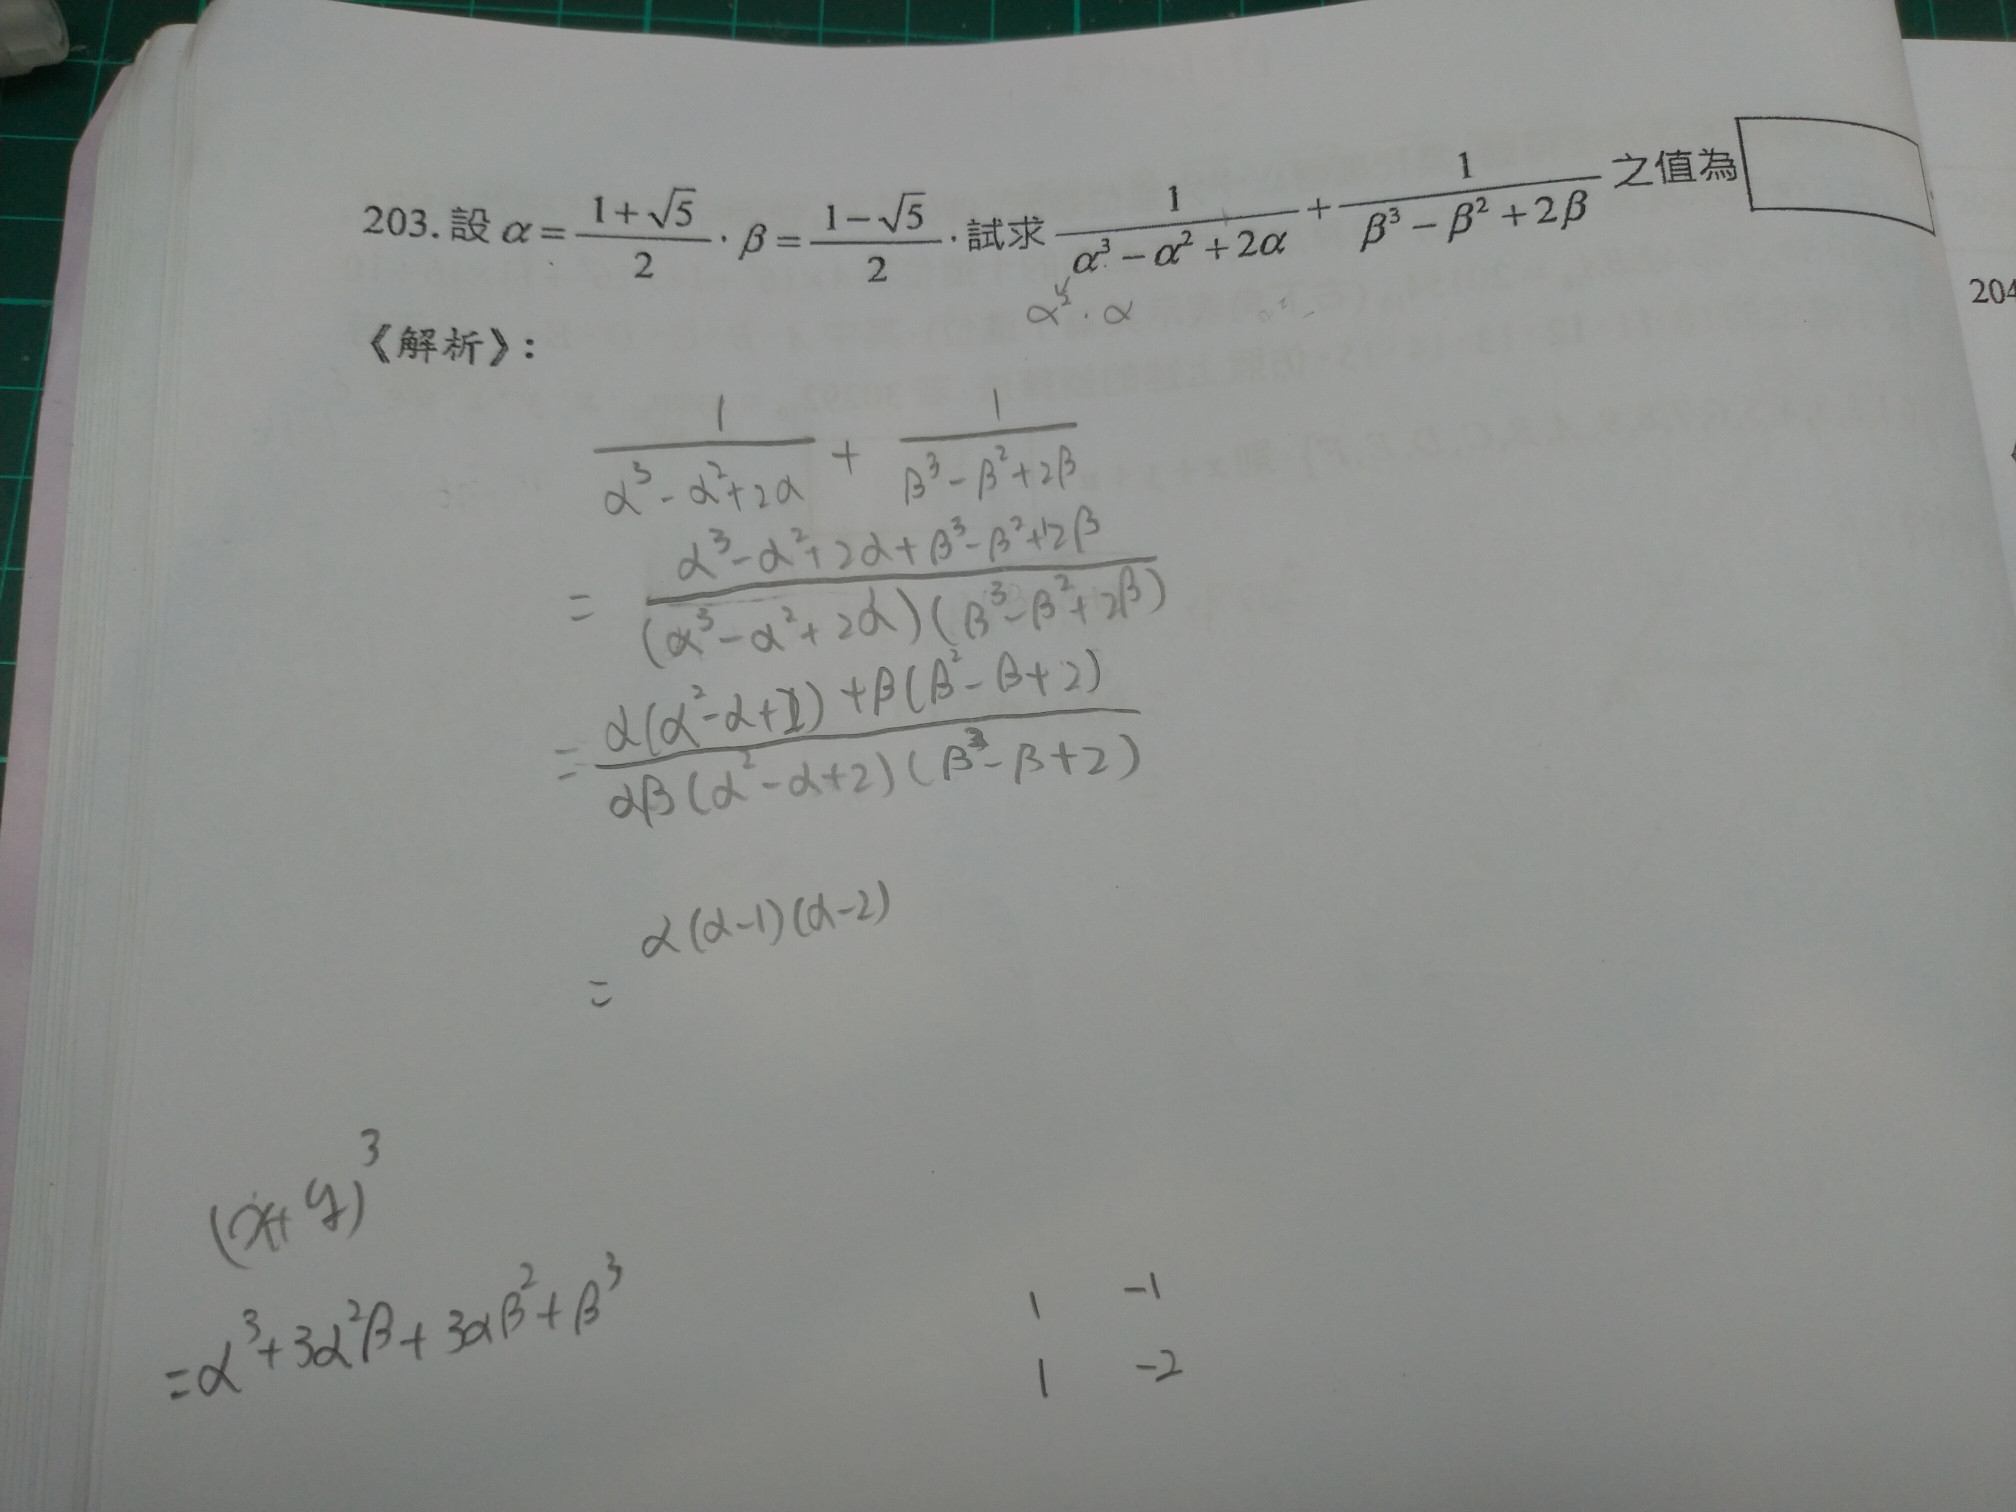 203. 設 α = (1+√5)/2 , β = (1−√5)/2 , 試求 1/(α³ − α² + 2α) + 1/(β³ − β² + 2β) 之值為
α² · α
204
《解析》:
1/(α³ − α² + 2α) + 1/(β³ − β² + 2β)
= (α³ − α² + 2α + β³ − β² + 2β)/((α³ − α² + 2α)(β³ − β² + 2β))
= (α(α² − α + 2) + β(β² − β + 2))/(αβ(α² − α + 2)(β² − β + 2))
α(α−1)(α−2)
=
(x+y)³
= α³ + 3α²β + 3αβ² + β³
1 −1
1 −2